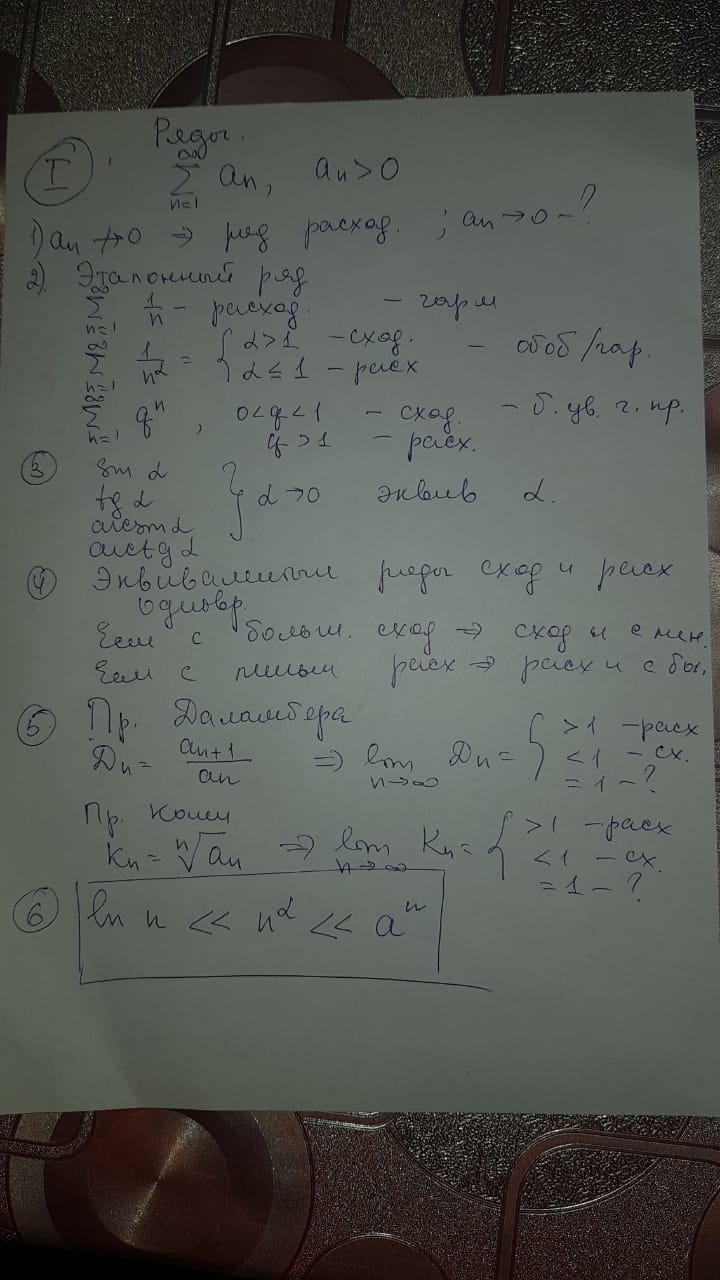 Ряды.
I
∞ ∑ n=1 aₙ, aₙ > 0
1) aₙ ↛ 0 ⇒ ряд расход. ; aₙ → 0 – ?
2) Эталонный ряд
∞ ∑ n=1 1/n – расход. – гарм
∞ ∑ n=1 1/n^α = { α > 1 – сход. – обоб/гар.
α ≤ 1 – расх
∞ ∑ n=1 qⁿ, 0 < q < 1 – сход. – б. ув. г. пр.
q > 1 – расх.
3 sin α
tg α } α → 0 эквив α.
arcsin α
arctg α
4 Эквивалентные ряды сход и расх
одновр.
Если с больш. сход ⇒ сход и с мен.
Если с меньш расх ⇒ расх и с бо.
5 Пр. Даламбера
Dₙ = aₙ₊₁/aₙ ⇒ lim n→∞ Dₙ = { > 1 – расх
< 1 – сх.
= 1 – ?
Пр. Коши
Kₙ = ⁿ√aₙ ⇒ lim n→∞ Kₙ = { > 1 – расх
< 1 – сх.
= 1 – ?
6 ln n << n^α << aⁿ